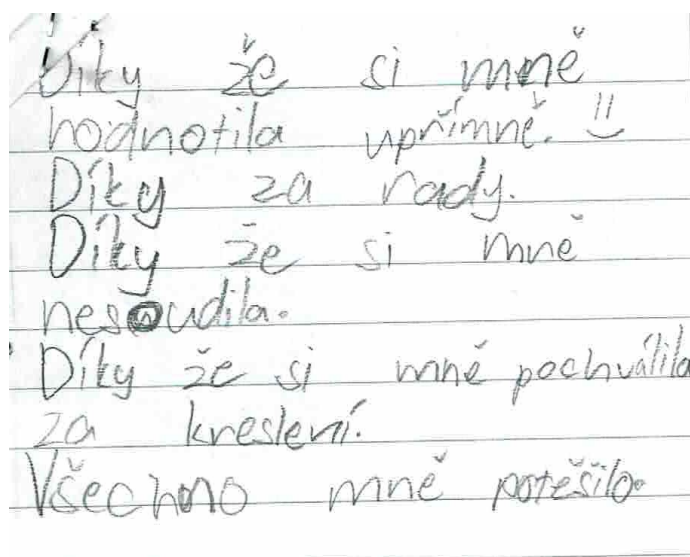 Díky že si mně
hodnotila upřímně. 
Díky za rady.
Díky že si mně
nesoudila.
Díky že si mně pochválila
za kreslení.
Všechno mně potěšilo.